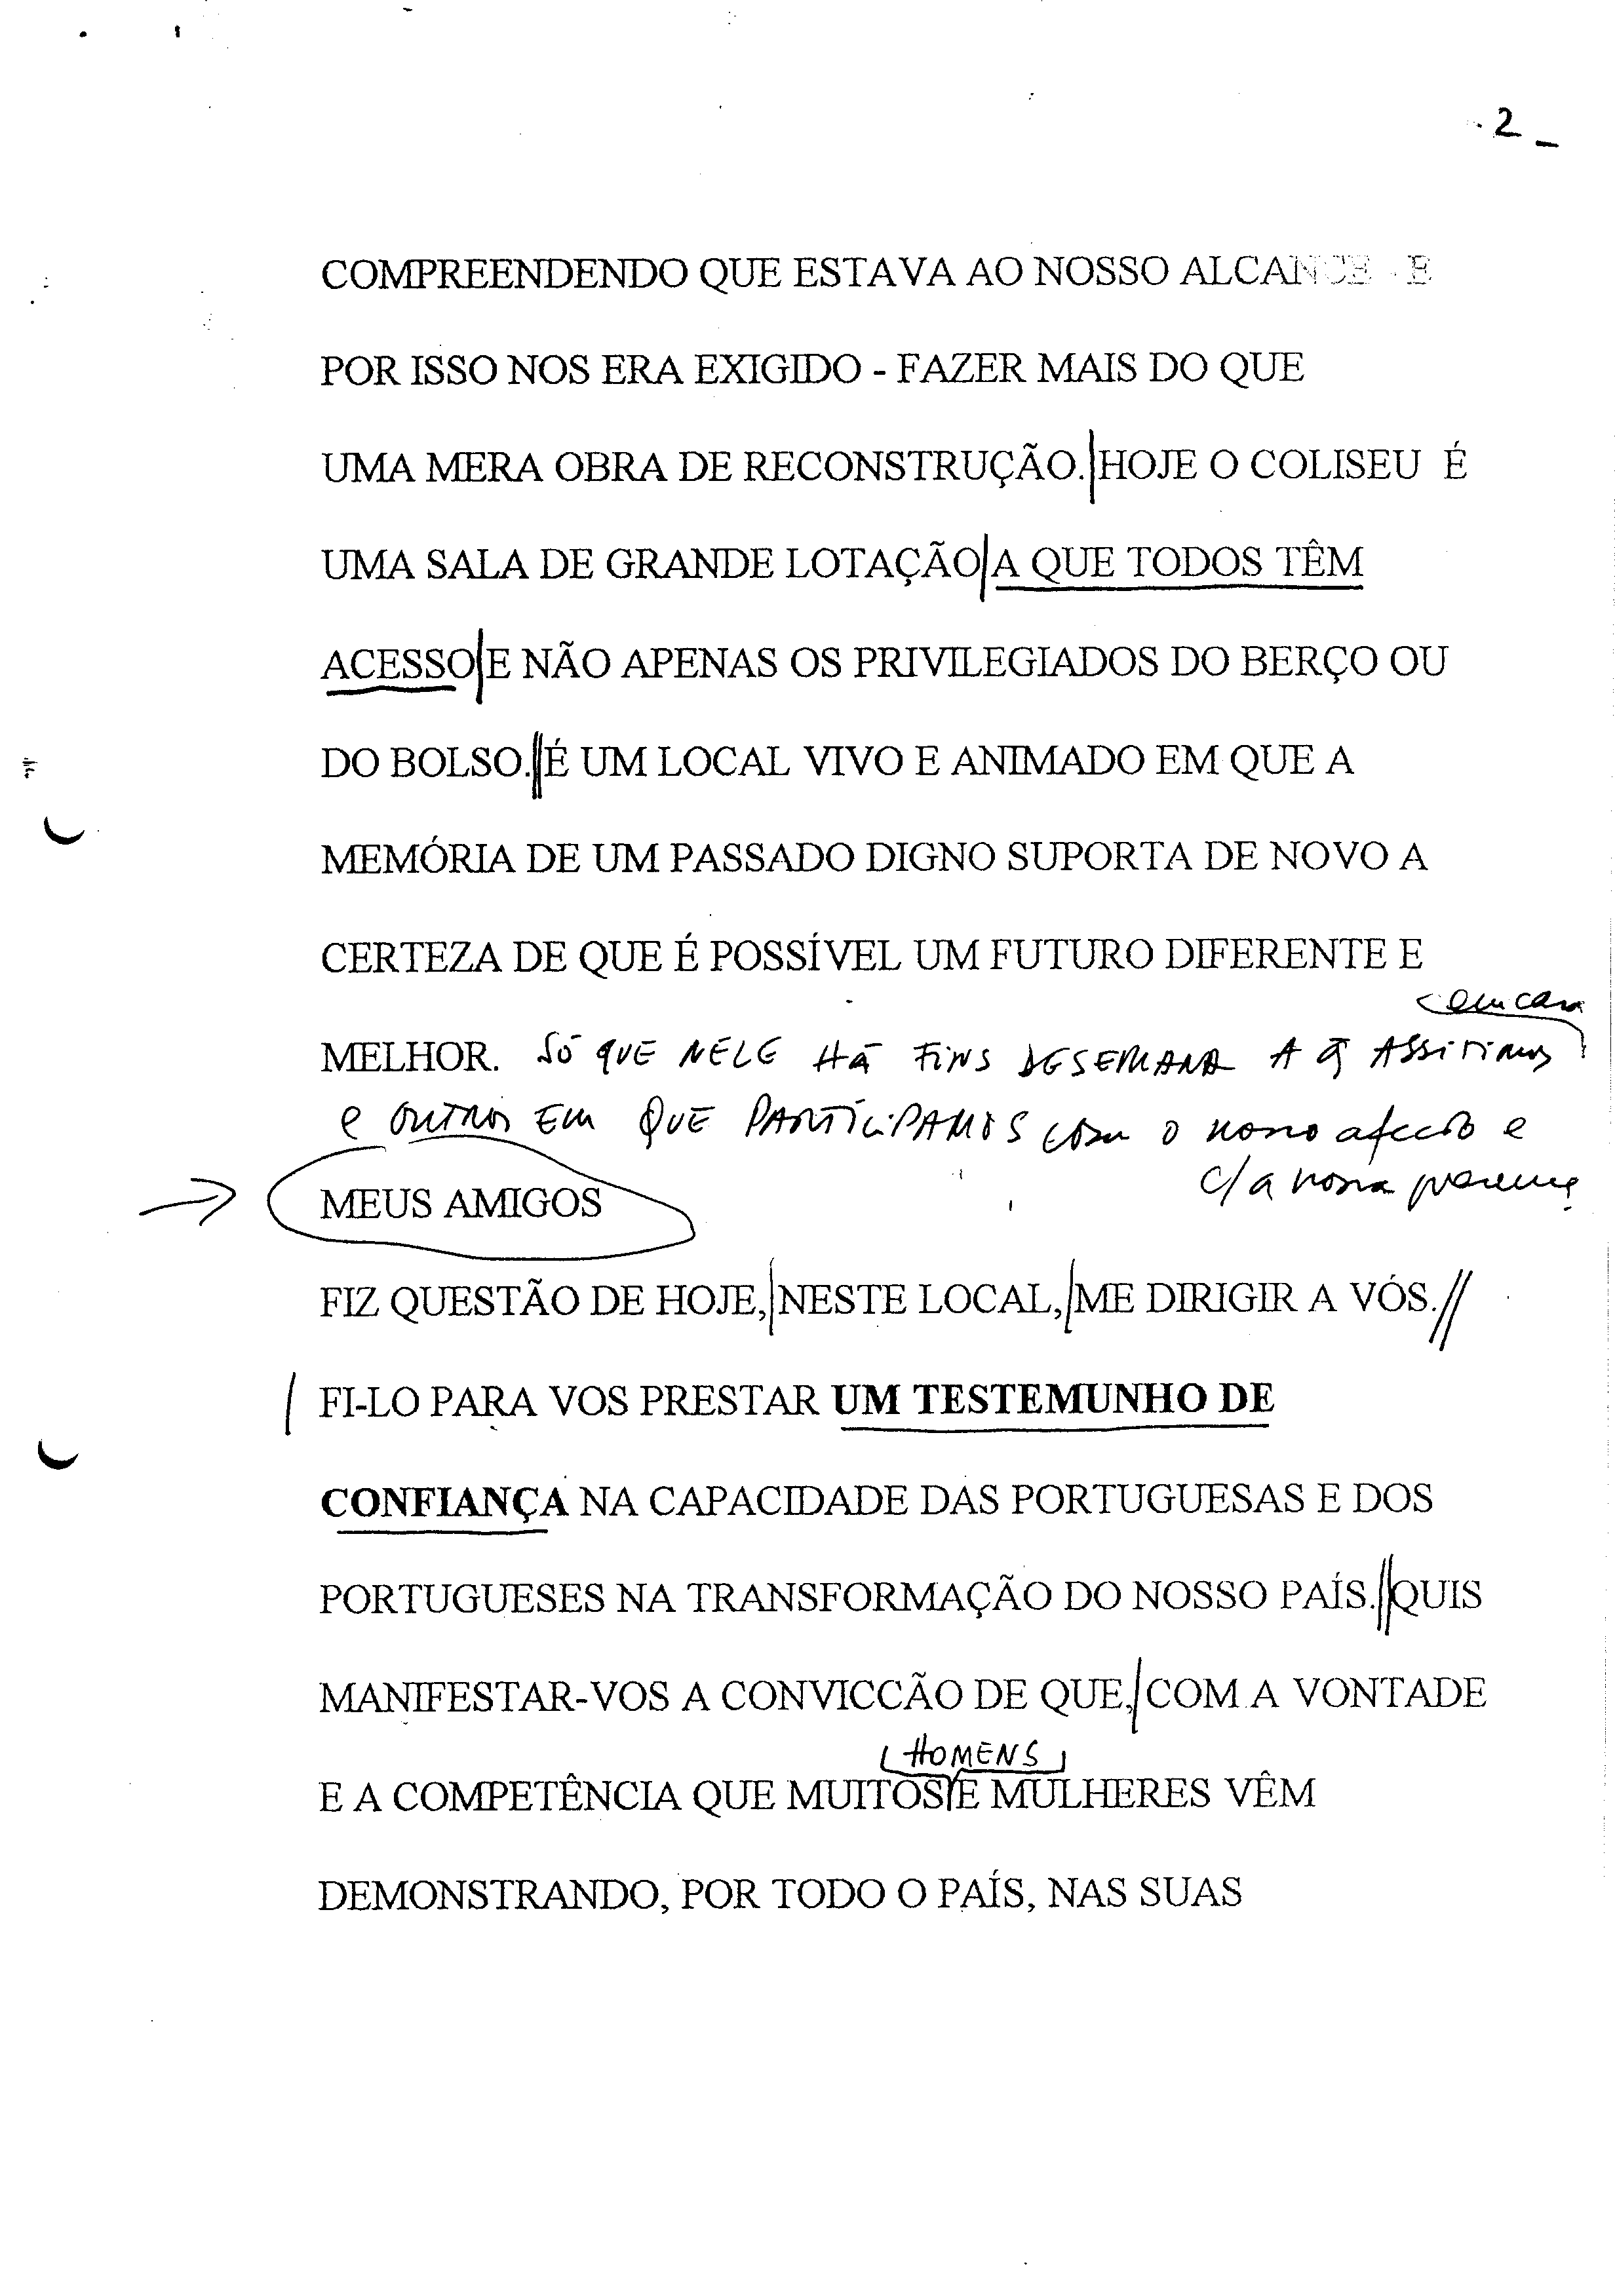 2_
COMPREENDENDO QUE ESTAVA AO NOSSO ALCANCE - E
POR ISSO NOS ERA EXIGIDO - FAZER MAIS DO QUE
UMA MERA OBRA DE RECONSTRUÇÃO. HOJE O COLISEU É
UMA SALA DE GRANDE LOTAÇÃO A QUE TODOS TÊM
ACESSO E NÃO APENAS OS PRIVILEGIADOS DO BERÇO OU
DO BOLSO. É UM LOCAL VIVO E ANIMADO EM QUE A
MEMÓRIA DE UM PASSADO DIGNO SUPORTA DE NOVO A
CERTEZA DE QUE É POSSÍVEL UM FUTURO DIFERENTE E
em casa
MELHOR. SÓ QUE NELE HÁ FINS DE SEMANA A q̃ ASSistimos
e outros EM QUE PARTICIPAMOS com o nosso afecto e
c/ a nossa presença
MEUS AMIGOS
FIZ QUESTÃO DE HOJE, NESTE LOCAL, ME DIRIGIR A VÓS.
FI-LO PARA VOS PRESTAR UM TESTEMUNHO DE
CONFIANÇA NA CAPACIDADE DAS PORTUGUESAS E DOS
PORTUGUESES NA TRANSFORMAÇÃO DO NOSSO PAÍS. QUIS
MANIFESTAR-VOS A CONVICCÃO DE QUE, COM A VONTADE
HOMENS
E A COMPETÊNCIA QUE MUITOS E MULHERES VÊM
DEMONSTRANDO, POR TODO O PAÍS, NAS SUAS